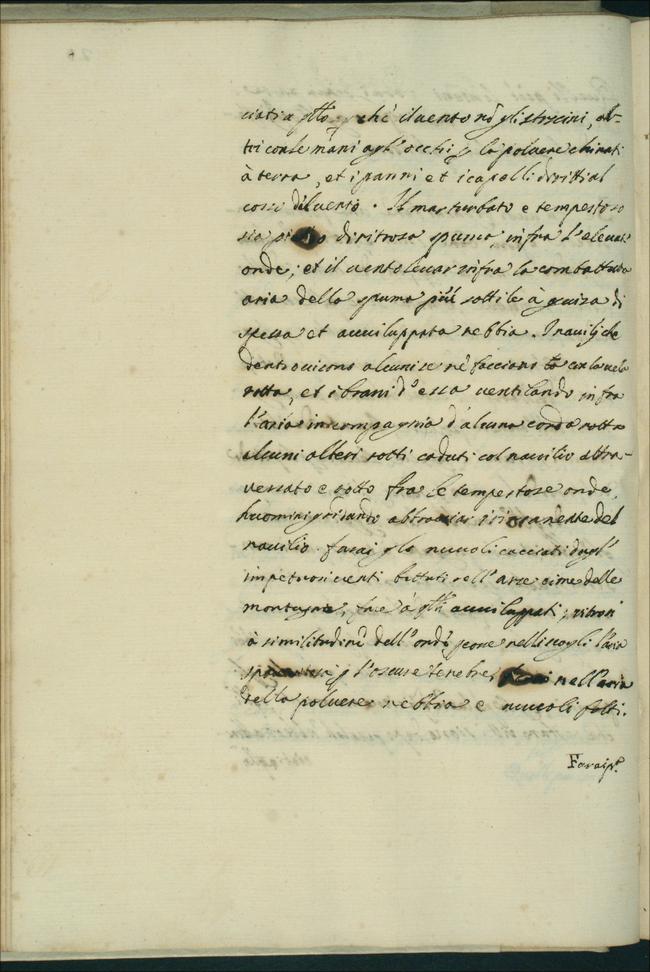 ciati a q̃llo, p̃ chè il vento nõ gli strscini, al-
tri con le mani agl'occhi p̃ la polvere chinati
à terra, et i panni et i capelli diritti al
corso del vento. Il mar turbato e tempestoso
sia pieno di ritrosa spuma, infra l'elevate
onde; et il vento levar infra la combattuta
aria della spuma più sottile à guiza di
spessa et avviluppata nebbia. I navilij che
dentro vi sono alcuni se nè facciano cõ la vela
rotta, et i brani d'essa ventilando infra
l'aria in compagnia d'alcuna corda rotta
alcuni alberi rotti caduti col navilio attra-
versato e rotto fra le tempestose onde,
huomini gridando abbracciar il rimanente del
navilio. farai gle nuvoli cacciati dagl'
impetuosi venti battuti nell'
cime delle
montagne, fare à q̃lli avviluppati, ritrosi
à similitudine dell'onde
nelli scogli l'aria
spaventosa p̃ l'oscure tenebre
nell'aria
della polvere nebbia e nuvoli folti.
Farai p̃.